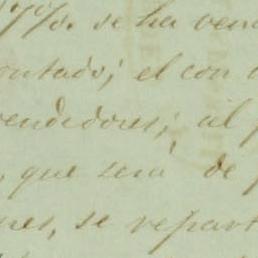 7%. se ha ven
ontado; el con
vendedores; al
, que será de
nes, se repart